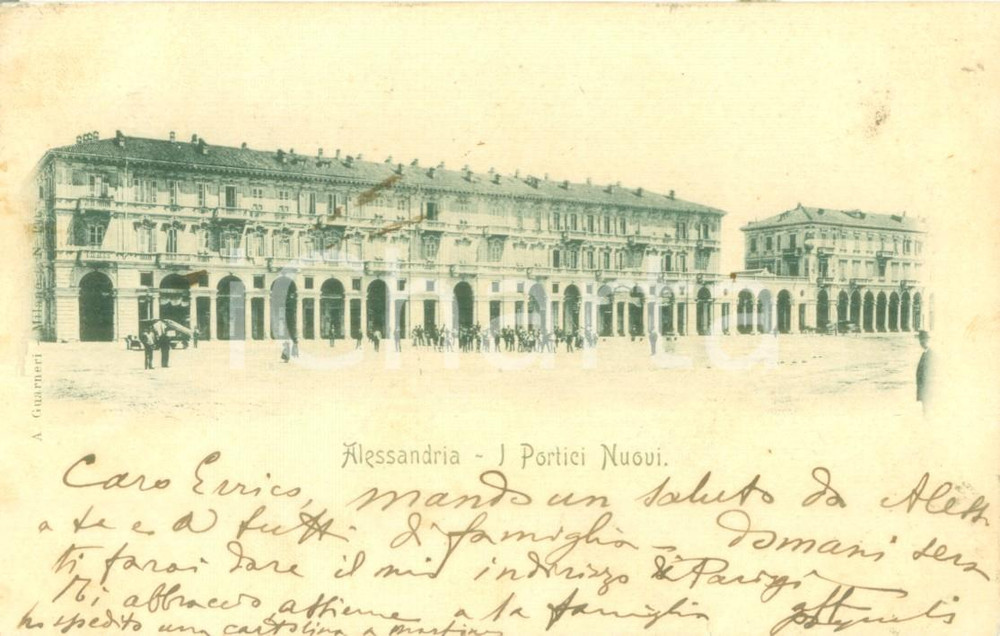 iCharta
A Guarneri
Alessandria - I Portici Nuovi.
Caro Errico, mando un saluto da Aless
a te e a tutti di famiglia - domani sera
ti farai dare il mio indirizzo Parigi
Mi abbraccio assieme a la famiglia
ho spedito una cartolina a